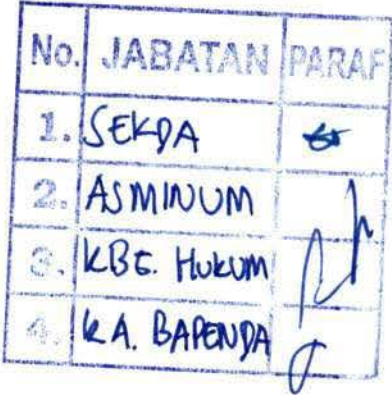 No. JABATAN PARAF
1. SEKDA
2. ASMINUM
3. KBG. HUKUM
4. KA. BAPENDA